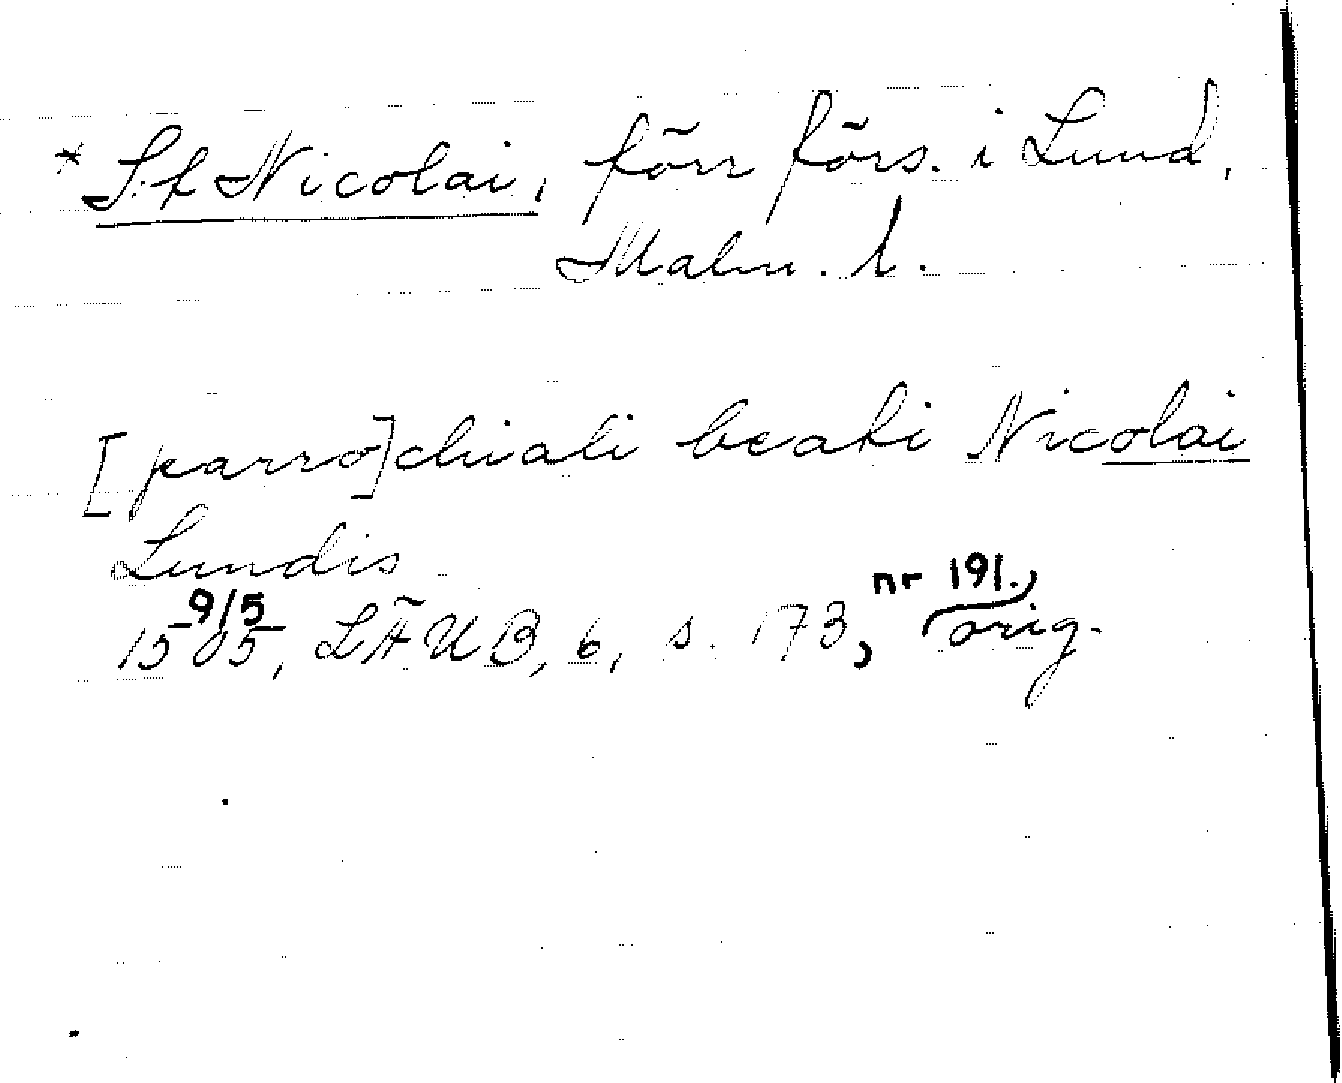 * S:t Nicolai, förr förs. i Lund,
Malm. l.
[parro]chiali beati Nicolai
Lundis
1505 9/5, LÄUB, 6, s. 173, nr 191., orig.